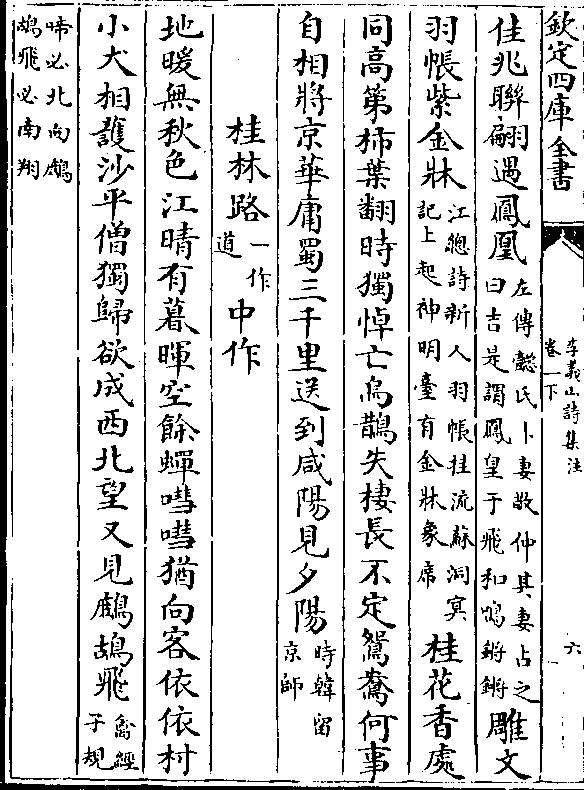 欽定四庫全書
李義山詩集注
卷一下
六
佳兆聯翩遇鳳凰左傳懿氏卜妻敬仲其妻占之曰吉是謂鳳皇于飛和鳴鏘鏘雕文
羽帳紫金牀江總詩新人羽帳挂流蘇洞冥記上起神明臺有金牀象席桂花香處
同高第柿葉翻時獨悼亡烏鵲失棲長不定鴛鴦何事
自相將京華庸蜀三千里送到咸陽見夕陽時韓留京師
桂林路一作道中作
地暖無秋色江晴有暮暉空餘蟬嘒嘒猶向客依依村
小犬相護沙平僧獨歸欲成西北望又見鷓鴣飛禽經子規
啼必北向鷓鴣飛必南翔